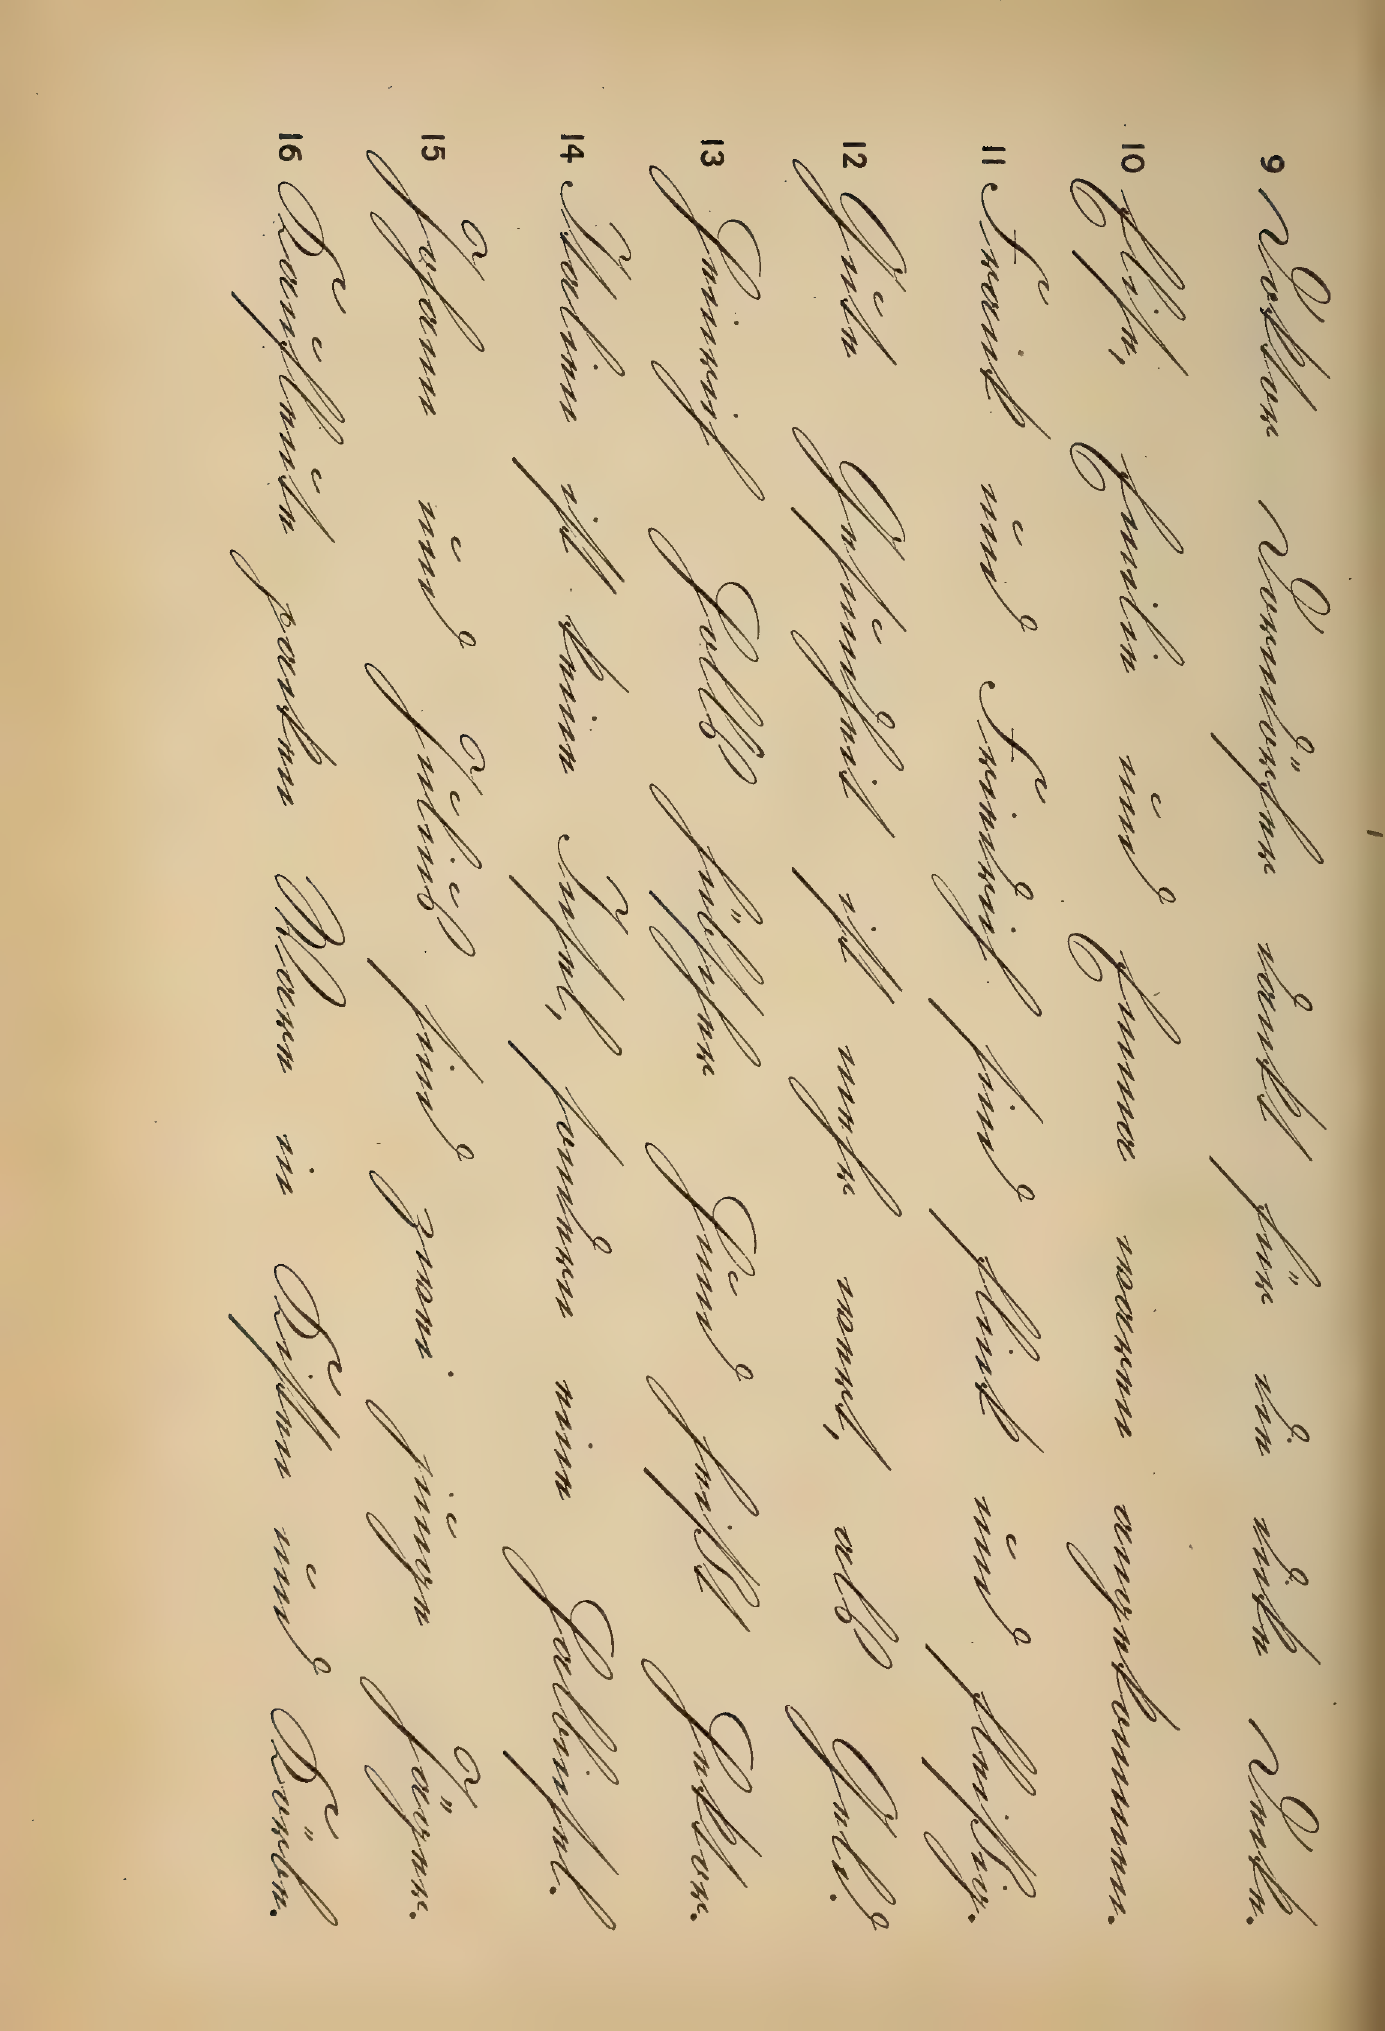 9 Doktor Dorndörfer dankt für die dicke Decke.
10 Elise, Emilie und Emma waren angekommen.
11 Frank und Friedrich sind flink und fleißig.
12 Gute Gesundheit ist mehr wert, als Geld.
13 Heinrich Holls hübscher Hund heißt Hektor.
14 Italien ist keine Insel, sondern eine Halbinsel.
15 Johann und Julius sind zwei junge Jäger.
16 Kaufleute packen Waren in Kisten und Körbe.